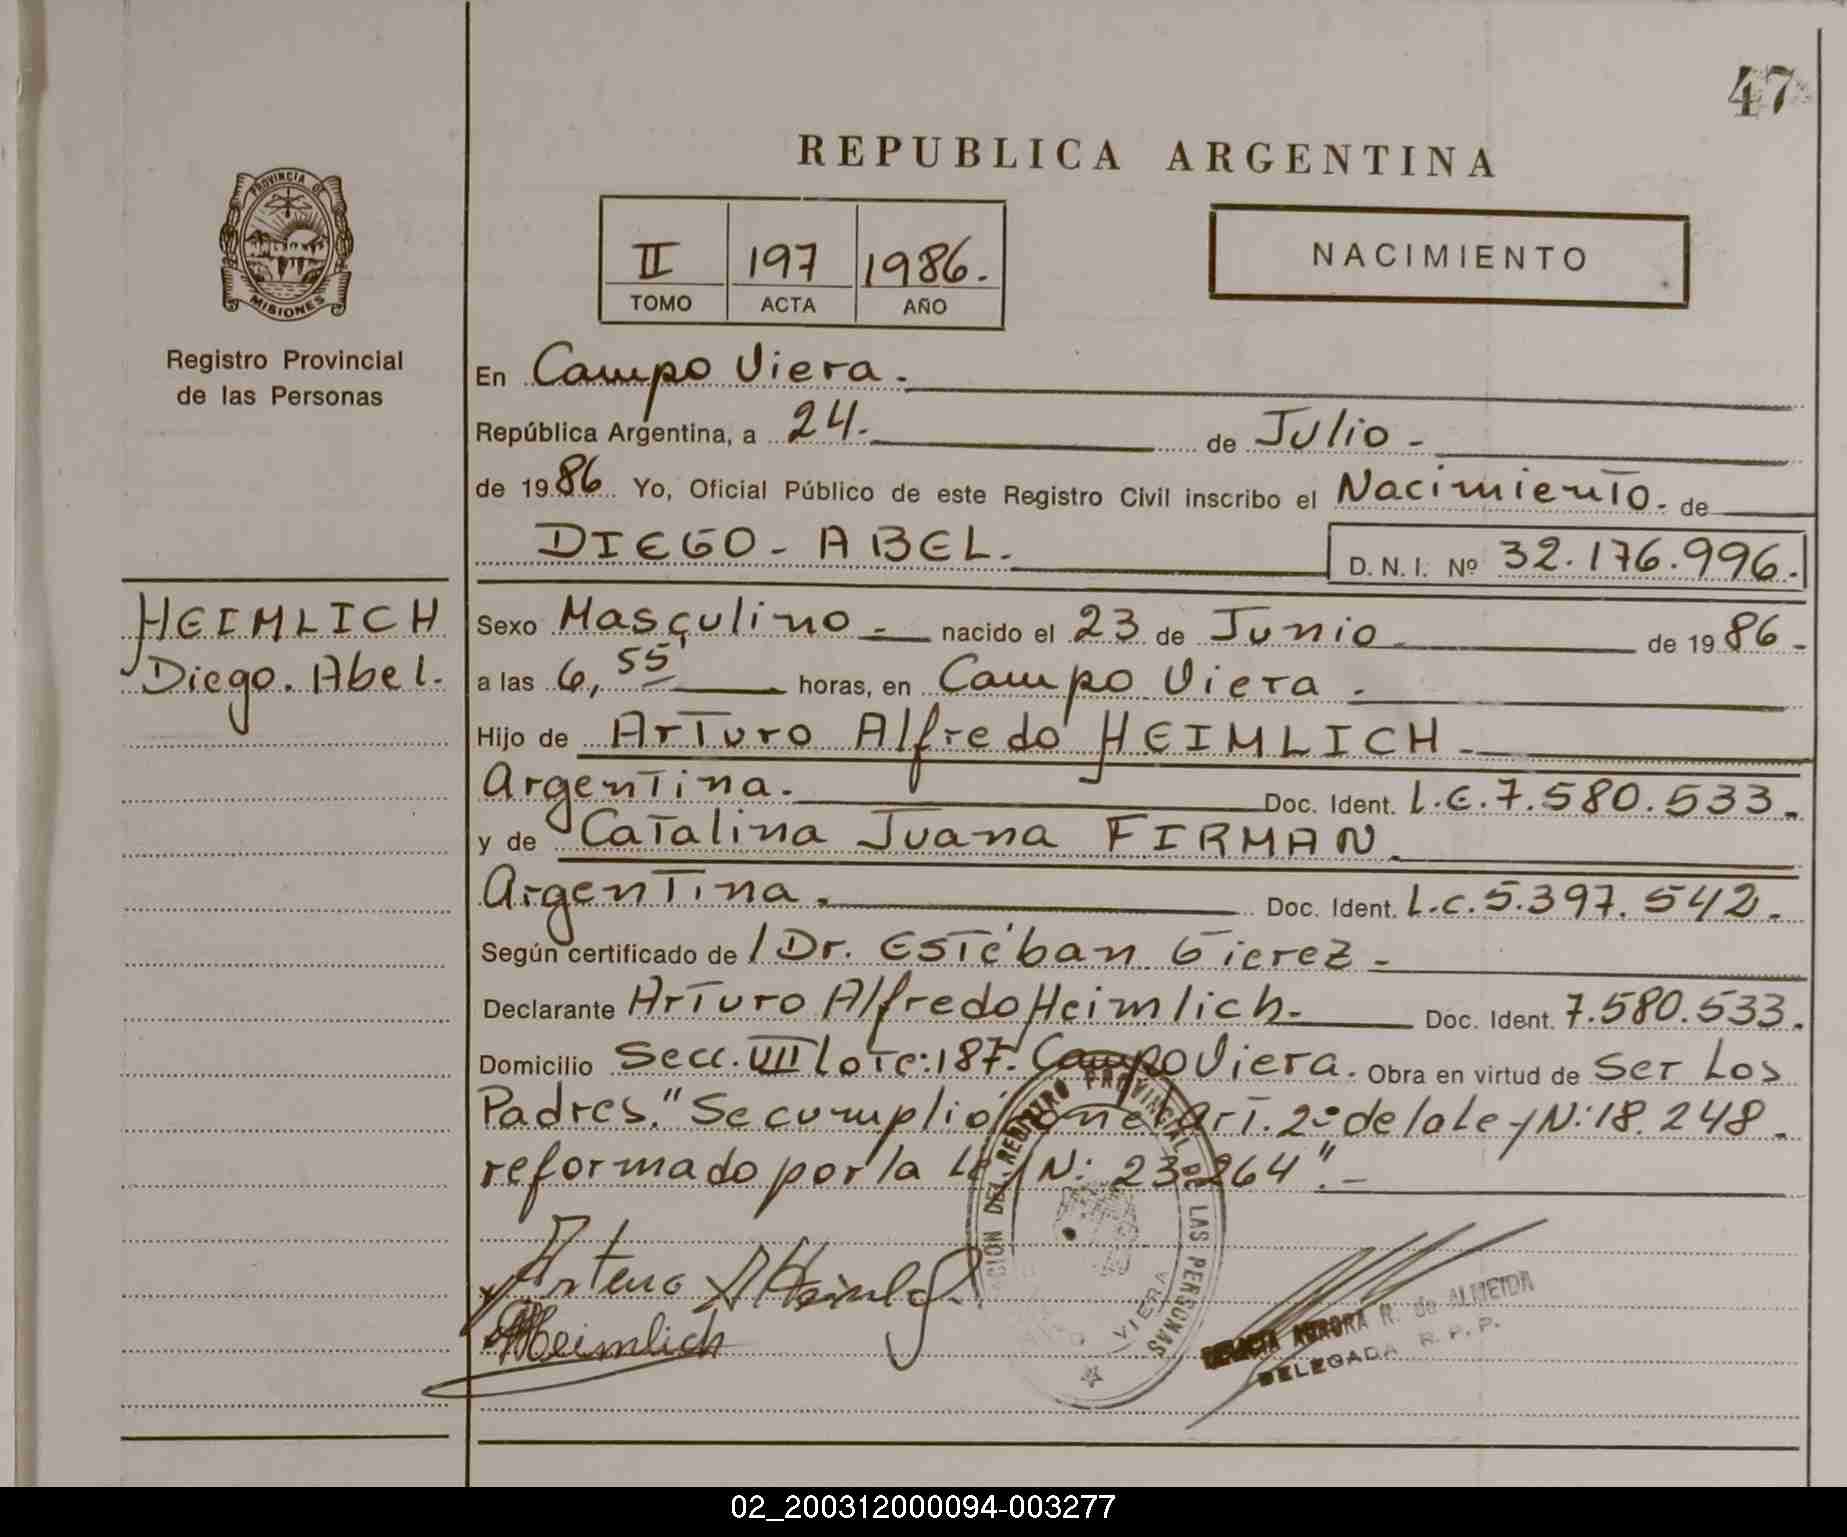 47
REPUBLICA ARGENTINA
PROVINCIA DE
MISIONES
Registro Provincial
de las Personas
II 197 1986.
TOMO ACTA AÑO
NACIMIENTO
En Campo Viera.
República Argentina, a 24. de Julio -
de 1986 Yo, Oficial Público de este Registro Civil inscribo el Nacimiento. de
DIEGO - ABEL. D. N. I. Nº 32.176.996.
HEIMLICH
Diego. Abel.
Sexo Masculino - nacido el 23 de Junio de 1986.
a las 6,55 horas, en Campo Viera.
Hijo de Arturo Alfredo HEIMLICH.
Argentina. Doc. Ident. L.E.7.580.533.
y de Catalina Juana FIRMAN.
Argentina. Doc. Ident. L.C.5.397.542.
Según certificado de / Dr. Estéban Gierez -
Declarante Arturo Alfredo Heimlich. Doc. Ident. 7.580.533.
Domicilio Secc. VII lote:187. Campo Viera. Obra en virtud de Ser Los
Padres." Se cumplió con el Art. 2º de la Ley N: 18.248.
reformado por la Ley N: 23.264".-
Arturo A Heimlich
Heimlich
DEL REGISTRO PROVINCIAL DE LAS PERSONAS
VIERA
AURORA R. de ALMEIDA
DELEGADA R. P. P.
02_200312000094-003277